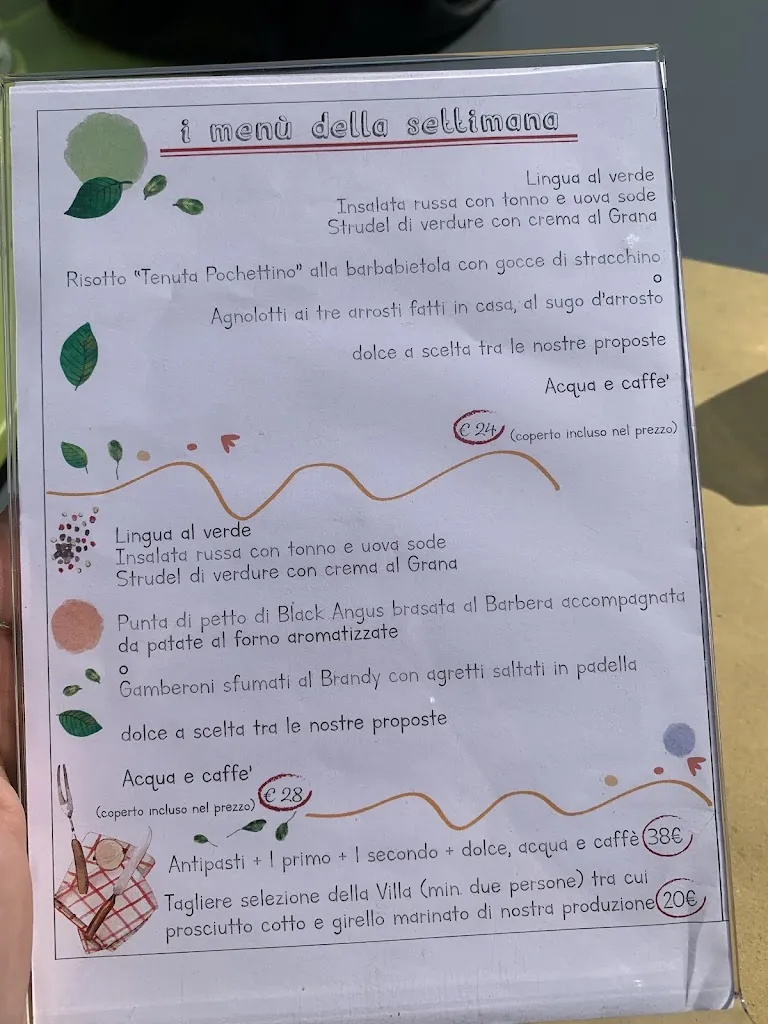 i menù della settimana
Lingua al verde
Insalata russa con tonno e uova sode
Strudel di verdure con crema al Grana
Risotto "Tenuta Pochettino" alla barbabietola con gocce di stracchino
o
Agnolotti ai tre arrosti fatti in casa, al sugo d'arrosto
dolce a scelta tra le nostre proposte
Acqua e caffe'
€ 24 (coperto incluso nel prezzo)
Lingua al verde
Insalata russa con tonno e uova sode
Strudel di verdure con crema al Grana
Punta di petto di Black Angus brasata al Barbera accompagnata
da patate al forno aromatizzate
o
Gamberoni sfumati al Brandy con agretti saltati in padella
dolce a scelta tra le nostre proposte
Acqua e caffe'
(coperto incluso nel prezzo) € 28
Antipasti + 1 primo + 1 secondo + dolce, acqua e caffè 38€
Tagliere selezione della Villa (min. due persone) tra cui
prosciutto cotto e girello marinato di nostra produzione 20€